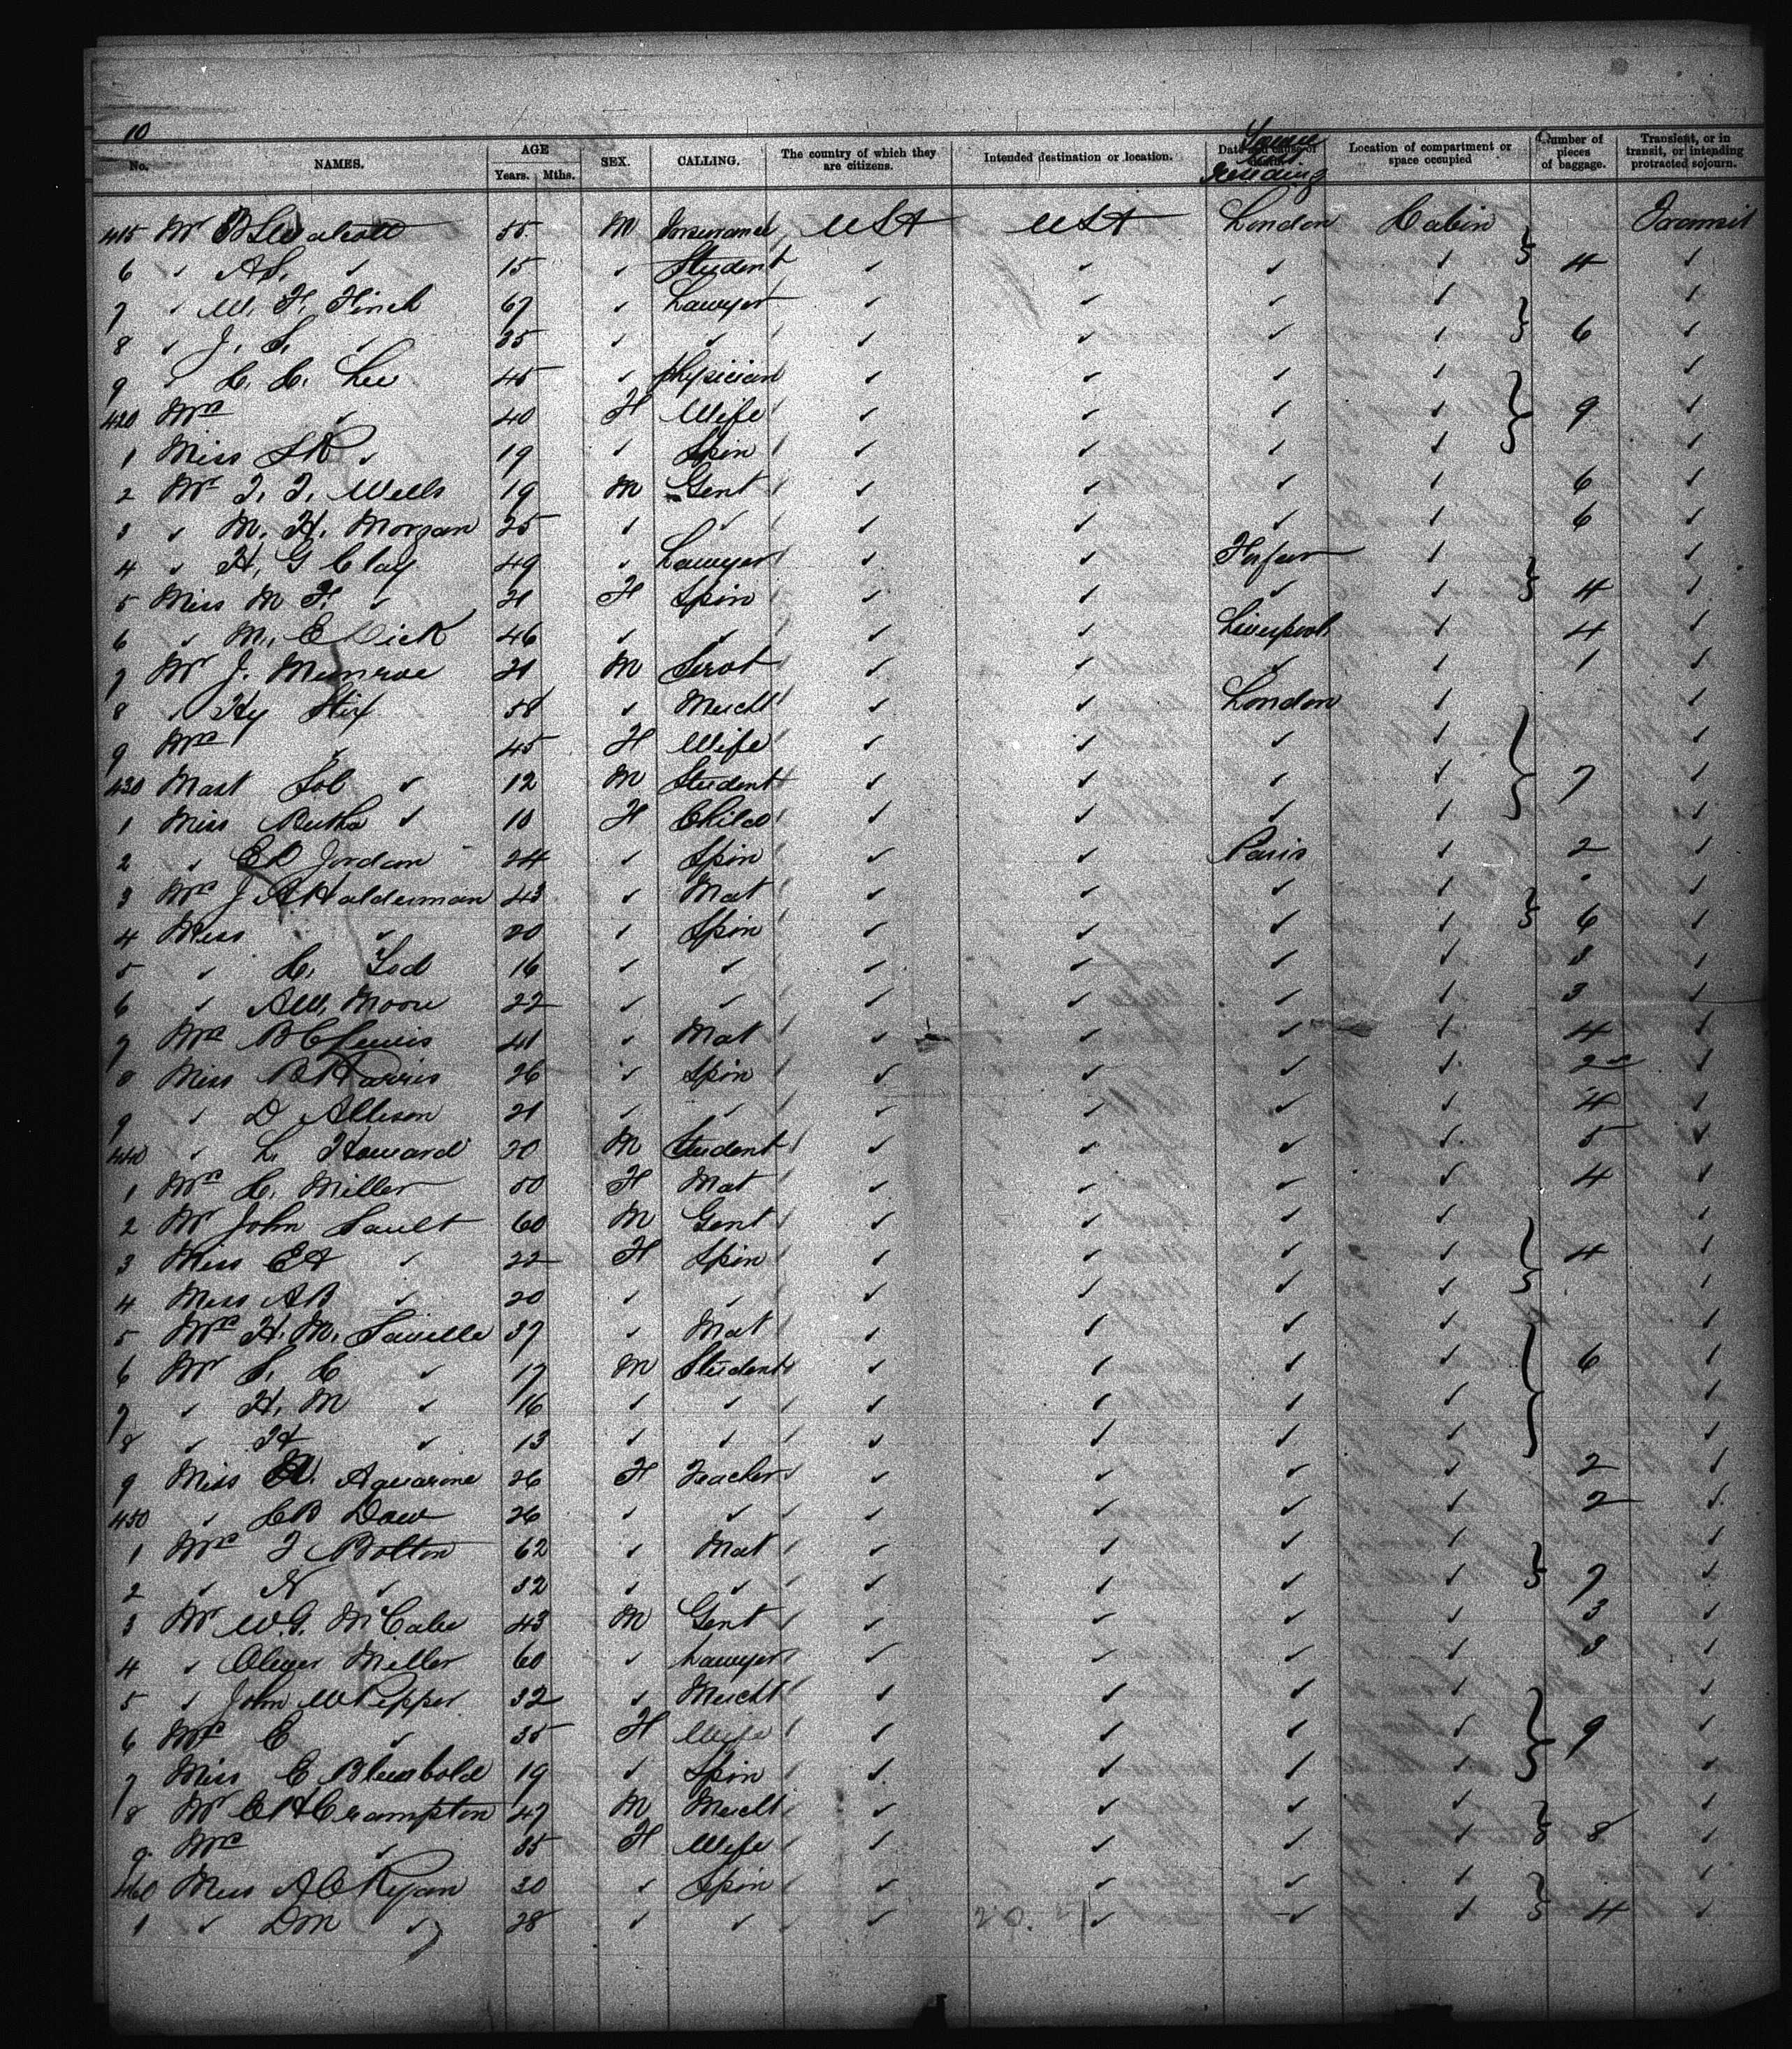 10
No. NAMES. AGE Years. Mths. SEX. CALLING. The country of which they are citizens. Intended destination or location. Date and cause of Place last residing Location of compartment or space occupied Number of pieces of baggage. Transient, or in transit, or intending protracted sojourn.
415 Mr 55 M Insurance USA USA London Cabin Transit
6 " A S. " 15 " Student " " " " 4 "
7 " W. F. Finch 67 " Lawyer " " " " "
8 " J. S. " 35 " " " " " " 6 "
9 " C. C. Lee 45 " Physician " " " " "
420 Mrs " 40 F Wife " " " " 9 "
1 Miss S R " 19 " Spin " " " " "
2 Mr T. T. Wells 19 M Gent " " " " 6 "
3 " M. H. Morgan 25 " " " " " " 6 "
4 " H. G Clay 49 " Lawyer " " " "
5 Miss M F. " 21 F Spin " " " " 4 "
6 " M. E Dick 46 " " " " Liverpool " 4 "
7 Mr J. Munroe 21 M Servt " " " " 1 "
8 " Hy Stix 58 " Mercht " " London " "
9 Mrs " 45 F Wife " " " " "
430 Mast Sol " 12 M Student " " " " 7 "
1 Miss Bertha " 10 F Child " " " " "
2 " E D Jordan 24 " Spin " " Paris " 2 "
3 Mrs J A Halderman 43 " Mat " " " " "
4 Miss " 20 " Spin " " " " 6 "
5 " C. 16 " " " " " " 3 "
6 " A W. Moore 22 " " " " " " 3 "
7 Mrs B C Lewis 41 " Mat " " " " 4 "
8 Miss B Harris 26 " Spin " " " " 2 "
9 " D Allison 21 " " " " " " 4 "
440 " L. Howard 20 M Student " " " " 5 "
1 Mrs C. Miller 50 F Mat " " " " 4 "
2 Mr John Sault 60 M Gent " " " " "
3 Miss E A " 22 F Spin " " " " 4 "
4 Miss A B " 20 " " " " " " "
5 Mrs H. M. Saville 37 " Mat " " " " "
6 Mr S. C " 17 M Student " " " " 6 "
7 " H. M " 16 " " " " " " "
8 " H " 13 " " " " " " "
9 Miss Aquarone 26 F Teacher " " " " 2 "
450 " C B Dow 26 " " " " " " 2 "
1 Mrs J Bolton 62 " Mat " " " " "
2 " N " 32 " " " " " " 7 "
3 Mr W. G. McCabe 43 M Gent " " " " 3 "
4 " Oliver Miller 60 " Lawyer " " " " 3 "
5 " John W Pepper 32 " Mercht " " " " "
6 Mrs E " 35 F Wife " " " " 9 "
7 Miss E Bleabold 19 " Spin " " " " "
8 Mr C H Crampton 47 M Mercht " " " " "
9 Mrs " 35 F Wife " " " " 8 "
460 Miss A C Ryan 30 " Spin " " " " "
1 " D M " 28 " " " " " " 4 "